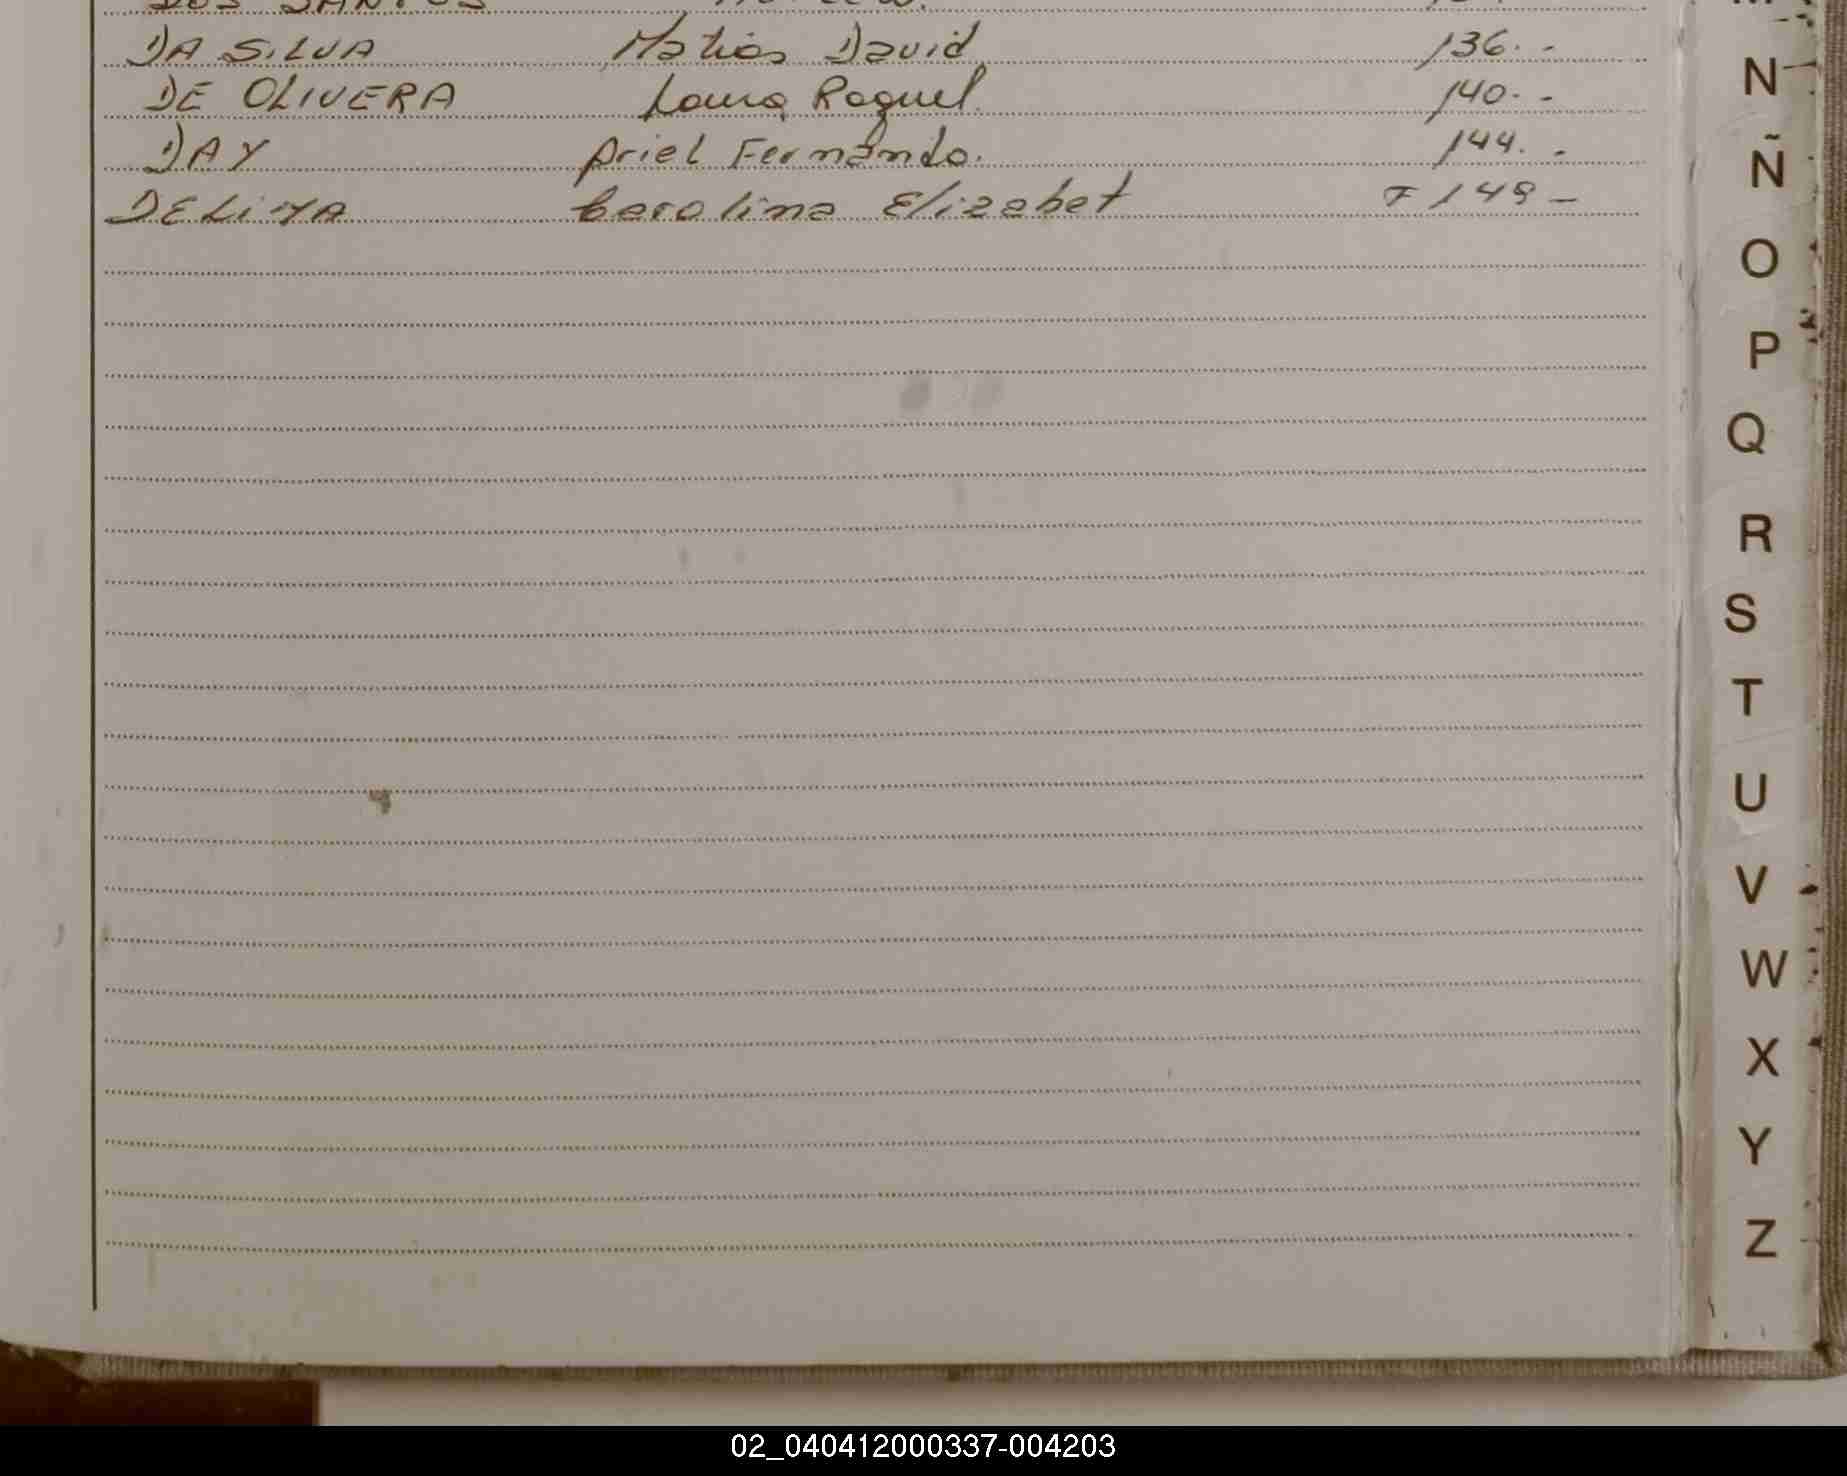 DOS SANTOS
DA SILVA Matias David 136.-
DE OLIVERA Laura Raquel. 140.-
DAY Ariel Fernando. 144.-
DE LIMA Carolina Elizabet F 149-
N
Ñ
O
P
Q
R
S
T
U
V
W
X
Y
Z
02_040412000337-004203